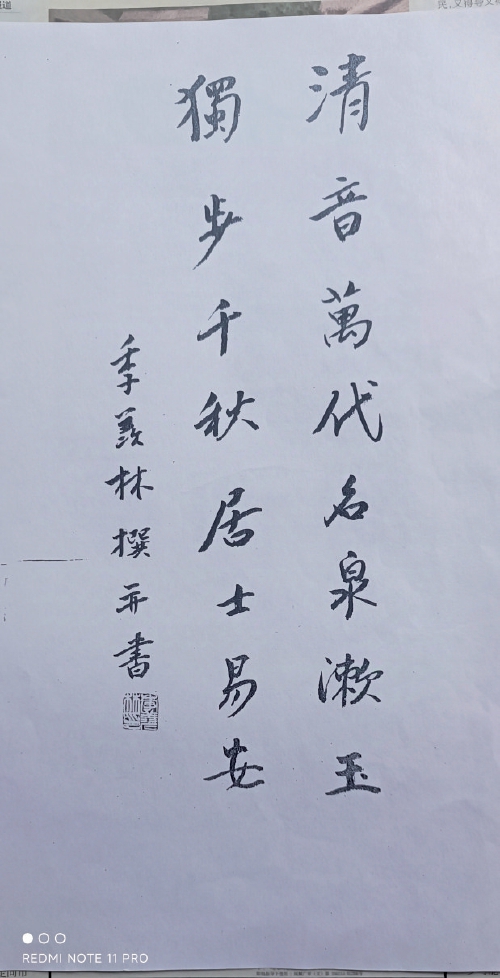 清音萬代名泉漱玉
獨步千秋居士易安
季羨林撰并書
REDMI NOTE 11 PRO